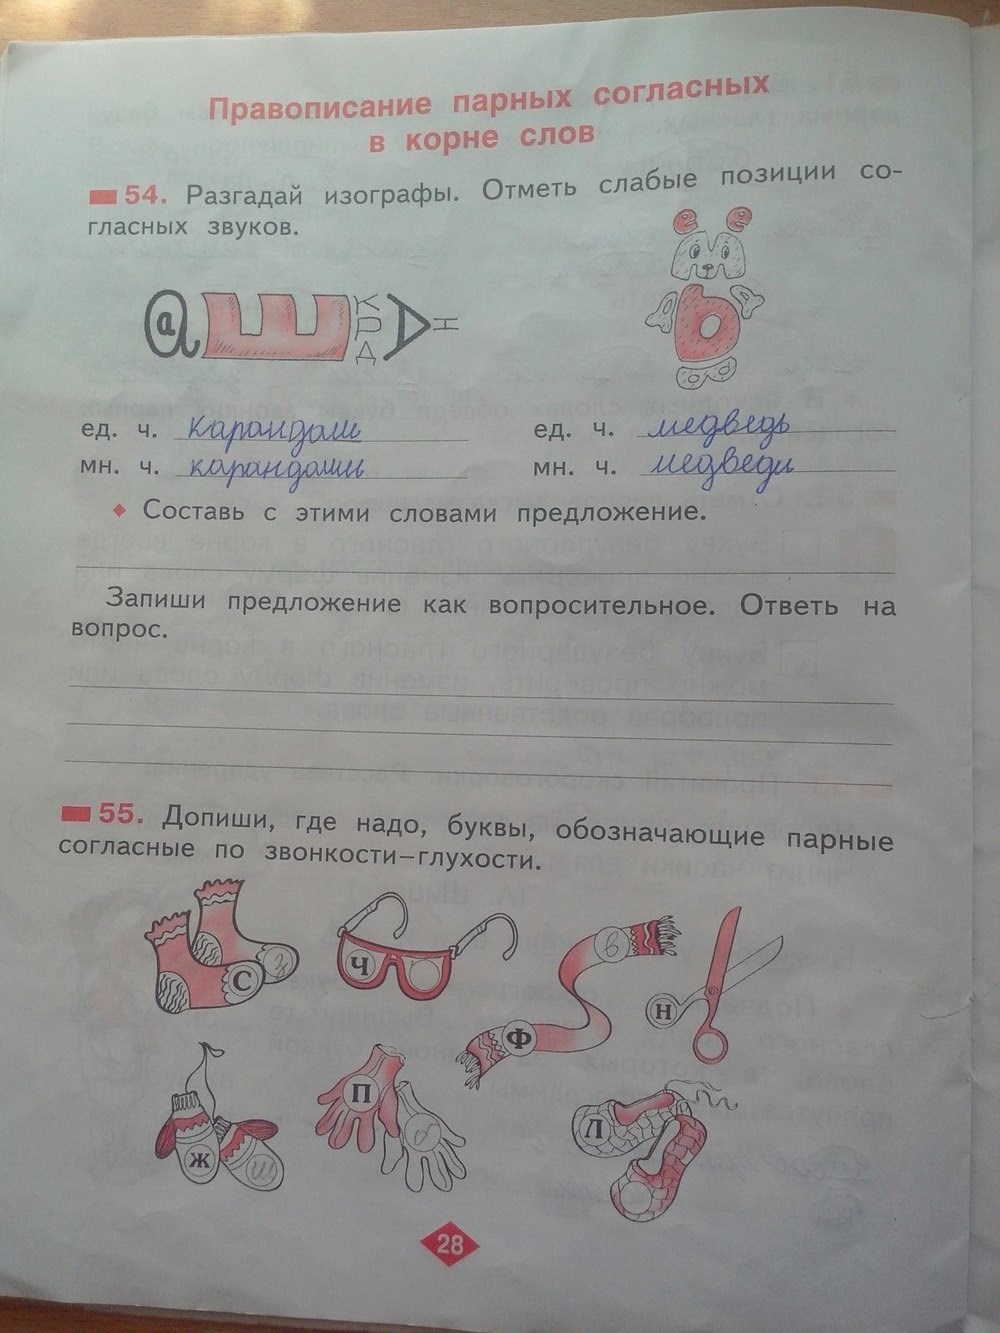 Правописание парных согласных
в корне слов
54. Разгадай изографы. Отметь слабые позиции со-
гласных звуков.
ед. ч. карандаш
ед. ч. медведь
мн. ч. карандаши
мн. ч. медведи
Составь с этими словами предложение.
Запиши предложение как вопросительное. Ответь на
вопрос.
55. Допиши, где надо, буквы, обозначающие парные
согласные по звонкости–глухости.
С З
Ч
Ф В
Н
Ж Ш
П б
Л
28